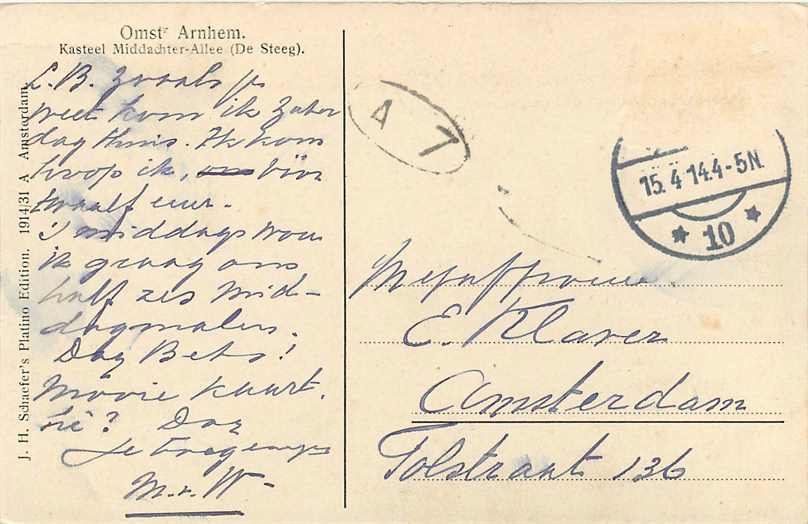 Omstr Arnhem.
Kasteel Middachter-Allee (De Steeg).
L.B. Zooals je
weet kom ik Zater
dag thuis. Ik kom
hoop ik, om vóór
twaalf uur.
's middags wou
ik graag om
half zes mid-
dagmalen.
Dag Bets!
Mooie kaart.
hè? Dag
je toegenegen
J. H. Schaefer's Platino Edition, 1914/31 A Amsterdam
A 7
15.4.14.4-5N.
* 10 *
Mejuffrouw
E. Klaver
Amsterdam
Tolstraat 136